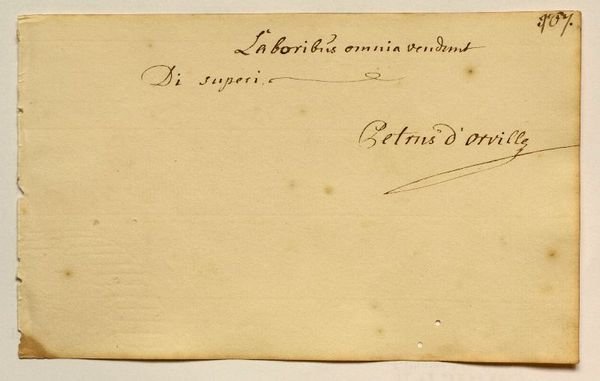 167.
Laboribus omnia vendunt
Di superi.
Petrus d'orville